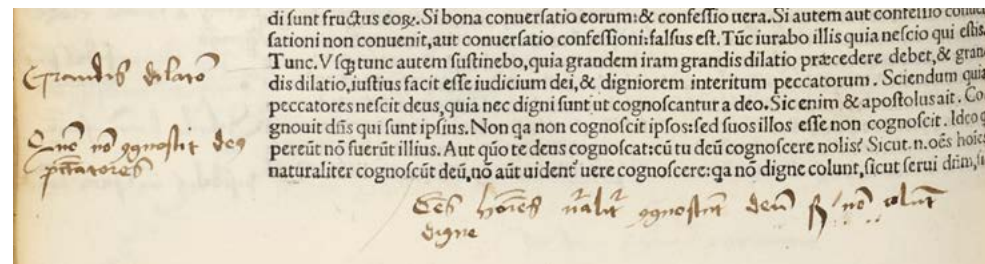 di sunt fructus eoꝝ. Si bona conuersatio eorum: & confessio uera. Si autem aut confessio conuer
sationi non conuenit, aut conuersatio confessioni: falsus est. Tūc iurabo illis quia nescio qui estis.
Tunc. Vsqꝫ tunc autem sustinebo, quia grandem iram grandis dilatio præcedere debet, & gran
dis dilatio, iustius facit esse iudicium dei, & digniorem interitum peccatorum. Sciendum quia
peccatores nescit deus, quia nec digni sunt ut cognoscantur a deo. Sic enim & apostolus ait. Co
gnouit dñs qui sunt ipsius. Non qa non cognoscit ipsos: sed suos illos esse non cognoscit. Ideo q
pereūt nō fuerūt illius. Aut quō te deus cognoscat: cū tu deū cognoscere nolis? Sicut .n. oēs hoīes
naturaliter cognoscūt deū, nō aūt uident᷑ uere cognoscere: qa nō digne colunt, sicut serui dñm,
Grandis dilatō
Quō nō ꝯgnoscit deꝰ
peccatores
Oēs hoīes nāalit᷑ ꝯgnoscūt deū sꝫ nō colūt
digne